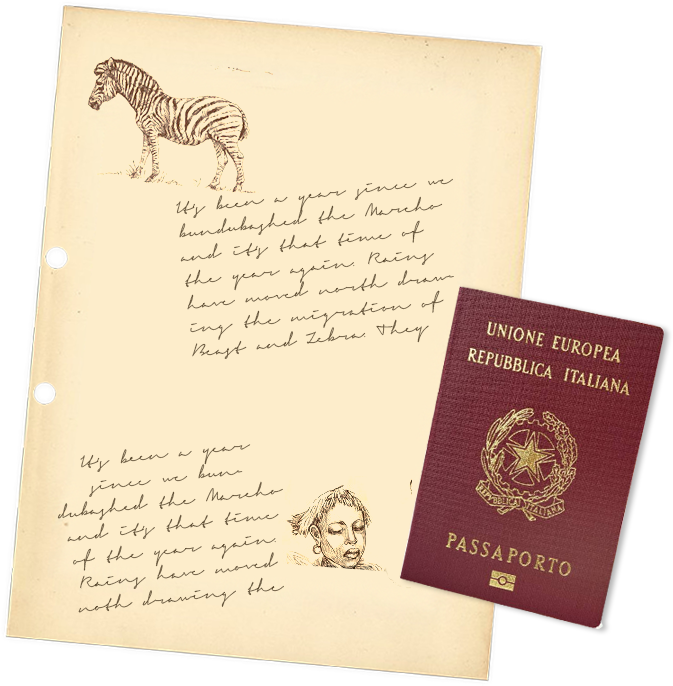 Its been a year since we
bundubashed the Marcho
and its that time of
the year again. Rains
have moved north draw
ing the migration of
Beast and Zebra. They
Its been a year
since we bun
dubashed the Marcho
and its that time
of the year again.
Rains have moved
noth drawing the
UNIONE EUROPEA
REPUBBLICA ITALIANA
REPUBBLICA ITALIANA
PASSAPORTO